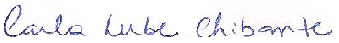 Carla Lube Chibante